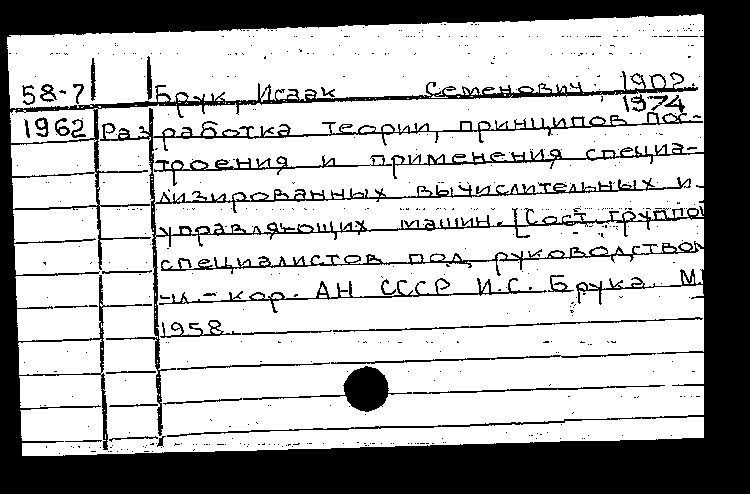 58-7 Брук, Исаак Семенович 1902
1974
1962 Разработка теории, принципов пос-
троения и применения специа-
лизированных вычислительных и
управляющих машин. [Сост. группой
специалистов под руководством
чл.-кор. АН СССР И.С. Брука. М.
1958.